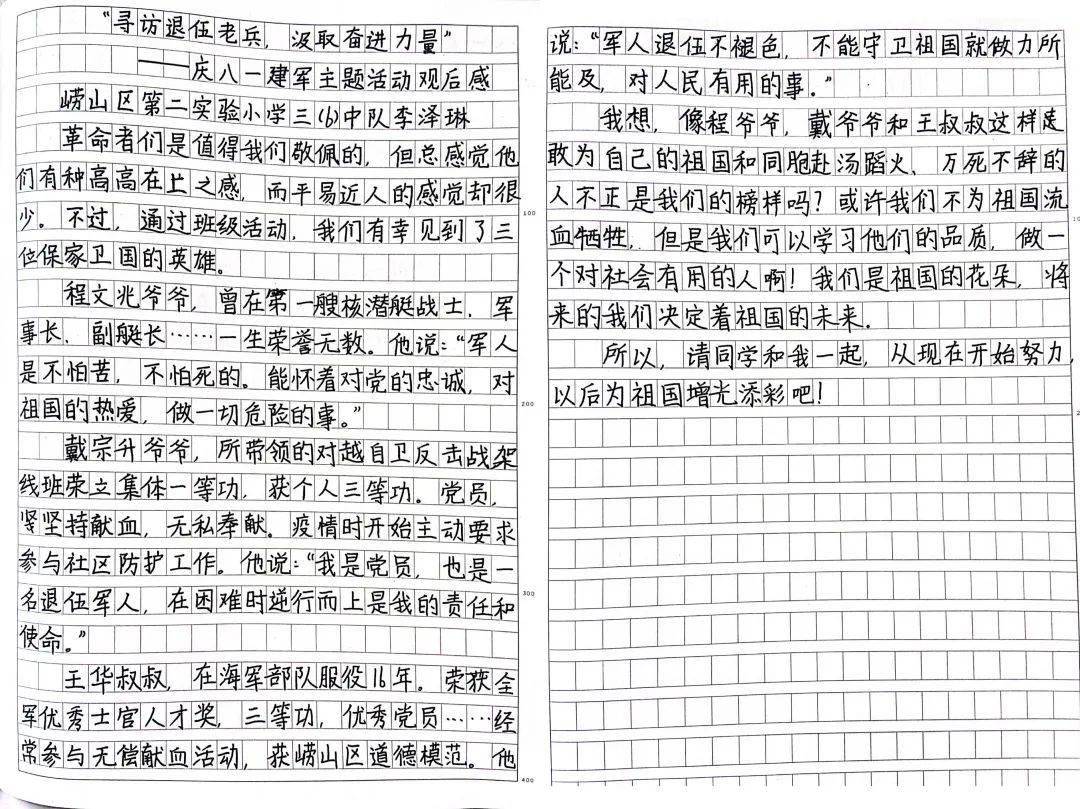 “寻访退伍老兵，汲取奋进力量”
——庆八一建军主题活动观后感
崂山区第二实验小学三(6)中队李泽琳
革命者们是值得我们敬佩的，但总感觉他
们有种高高在上之感，而平易近人的感觉却很
少。不过，通过班级活动，我们有幸见到了三
位保家卫国的英雄。
程文兆爷爷，曾在第一艘核潜艇战士，军
事长、副艇长……一生荣誉无数。他说：“军人
是不怕苦，不怕死的。能怀着对党的忠诚，对
祖国的热爱，做一切危险的事。”
戴宗升爷爷，所带领的对越自卫反击战架
线班荣立集体一等功，获个人三等功。党员，
坚持献血，无私奉献。疫情时开始主动要求
参与社区防护工作。他说：“我是党员，也是一
名退伍军人，在困难时逆行而上是我的责任和
使命。”
王华叔叔，在海军部队服役16年。荣获全
军优秀士官人才奖，三等功，优秀党员……经
常参与无偿献血活动，获崂山区道德模范。他
说：“军人退伍不褪色，不能守卫祖国就做力所
能及，对人民有用的事。”
我想，像程爷爷，戴爷爷和王叔叔这样
敢为自己的祖国和同胞赴汤蹈火、万死不辞的
人不正是我们的榜样吗？或许我们不为祖国流
血牺牲，但是我们可以学习他们的品质，做一
个对社会有用的人啊！我们是祖国的花朵，将
来的我们决定着祖国的未来．
所以，请同学和我一起，从现在开始努力，
以后为祖国增光添彩吧！
100
200
300
400